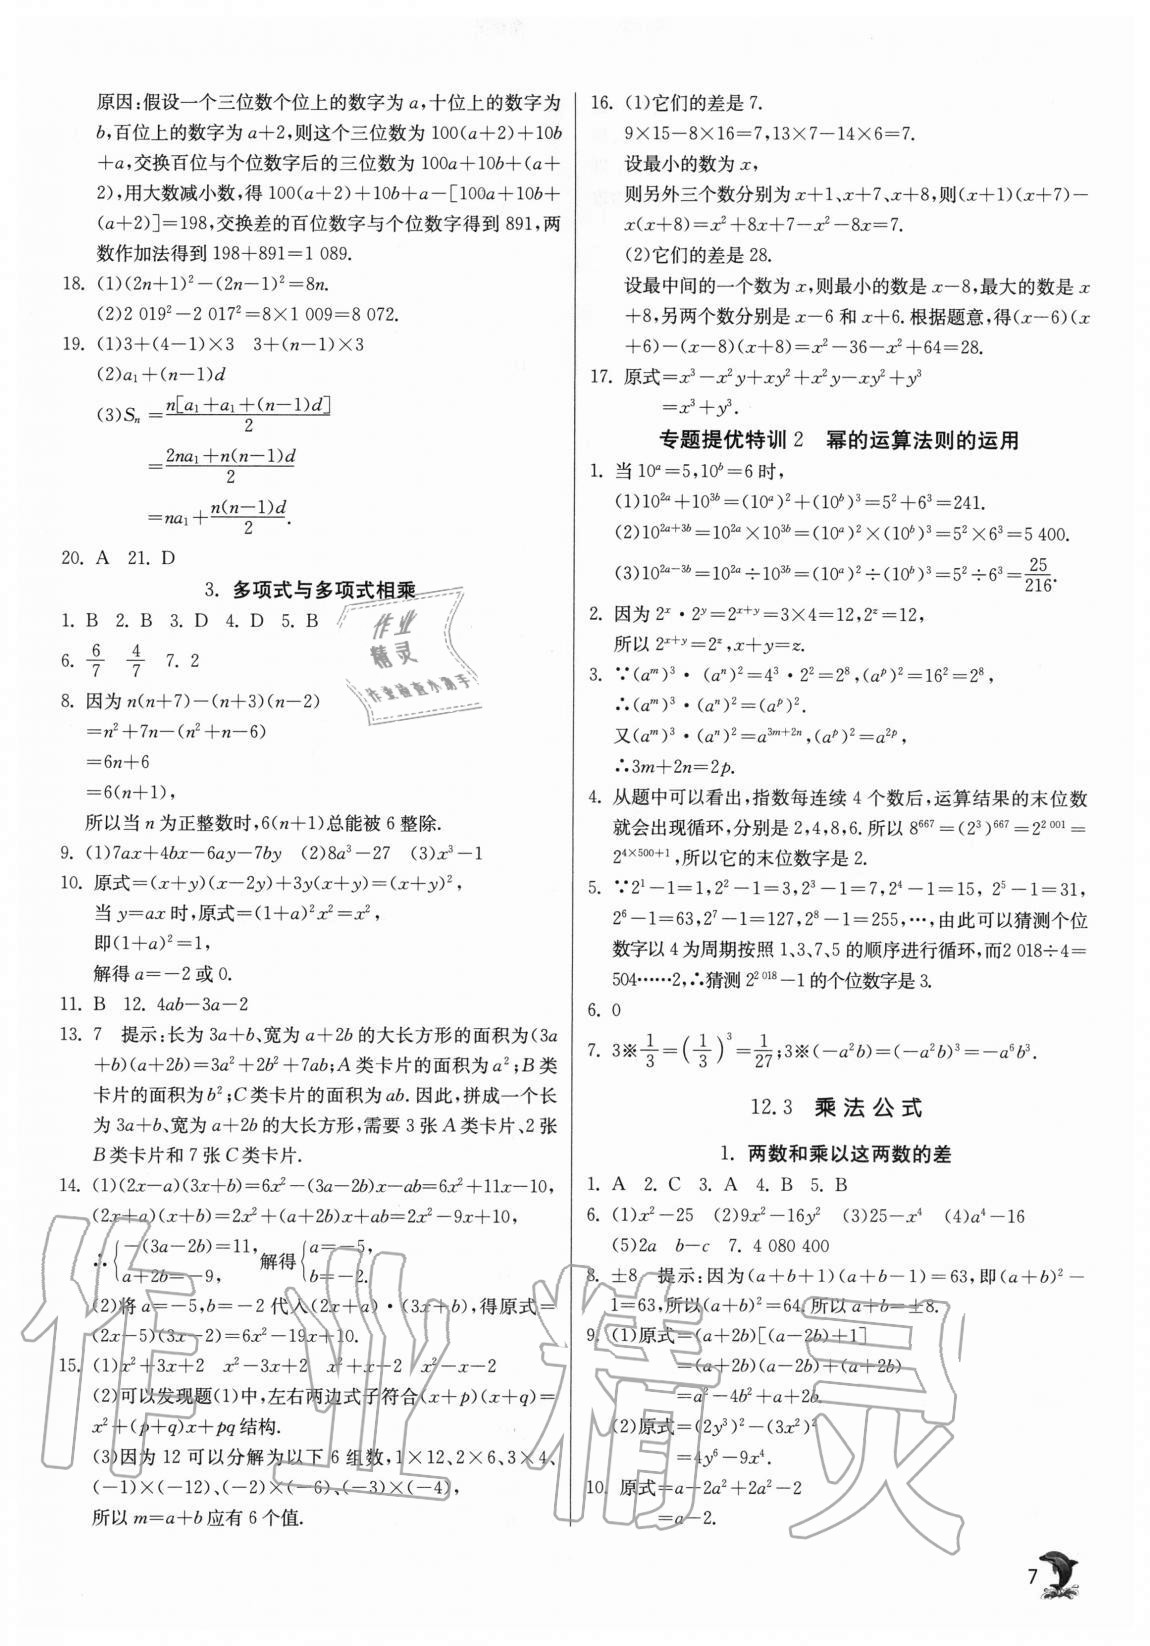 原因:假设一个三位数个位上的数字为a,十位上的数字为
b,百位上的数字为a+2,则这个三位数为100(a+2)+10b
+a,交换百位与个位数字后的三位数为100a+10b+(a+
2),用大数减小数,得100(a+2)+10b+a-[100a+10b+
(a+2)]=198,交换差的百位数字与个位数字得到891,两
数作加法得到198+891=1 089.
18. (1)(2n+1)²-(2n-1)²=8n.
(2)2 019²-2 017²=8×1 009=8 072.
19. (1)3+(4-1)×3 3+(n-1)×3
(2)a₁+(n-1)d
(3)Sₙ=n[a₁+a₁+(n-1)d]/2
=2na₁+n(n-1)d/2
=na₁+n(n-1)d/2.
20. A 21. D
3. 多项式与多项式相乘
1. B 2. B 3. D 4. D 5. B
6. 6/7 4/7 7. 2
8. 因为n(n+7)-(n+3)(n-2)
=n²+7n-(n²+n-6)
=6n+6
=6(n+1),
所以当n为正整数时,6(n+1)总能被6整除.
9. (1)7ax+4bx-6ay-7by (2)8a³-27 (3)x³-1
10. 原式=(x+y)(x-2y)+3y(x+y)=(x+y)²,
当y=ax时,原式=(1+a)²x²=x²,
即(1+a)²=1,
解得a=-2或0.
11. B 12. 4ab-3a-2
13. 7 提示:长为3a+b、宽为a+2b的大长方形的面积为(3a
+b)(a+2b)=3a²+2b²+7ab;A类卡片的面积为a²;B类
卡片的面积为b²;C类卡片的面积为ab.因此,拼成一个长
为3a+b、宽为a+2b的大长方形,需要3张A类卡片、2张
B类卡片和7张C类卡片.
14. (1)(2x-a)(3x+b)=6x²-(3a-2b)x-ab=6x²+11x-10,
(2x+a)(x+b)=2x²+(a+2b)x+ab=2x²-9x+10,
∴{-(3a-2b)=11, a+2b=-9, 解得{a=-5, b=-2.
(2)将a=-5,b=-2代入(2x+a)·(3x+b),得原式=
(2x-5)(3x-2)=6x²-19x+10.
15. (1)x²+3x+2 x²-3x+2 x²+x-2 x²-x-2
(2)可以发现题(1)中,左右两边式子符合(x+p)(x+q)=
x²+(p+q)x+pq结构.
(3)因为12可以分解为以下6组数,1×12、2×6、3×4、
(-1)×(-12)、(-2)×(-6)、(-3)×(-4),
所以m=a+b应有6个值.
16. (1)它们的差是7.
9×15-8×16=7,13×7-14×6=7.
设最小的数为x,
则另外三个数分别为x+1、x+7、x+8,则(x+1)(x+7)-
x(x+8)=x²+8x+7-x²-8x=7.
(2)它们的差是28.
设最中间的一个数为x,则最小的数是x-8,最大的数是x
+8,另两个数分别是x-6和x+6.根据题意,得(x-6)(x
+6)-(x-8)(x+8)=x²-36-x²+64=28.
17. 原式=x³-x²y+xy²+x²y-xy²+y³
=x³+y³.
专题提优特训2 幂的运算法则的运用
1. 当10ᵃ=5,10ᵇ=6时,
(1)10²ᵃ+10³ᵇ=(10ᵃ)²+(10ᵇ)³=5²+6³=241.
(2)10²ᵃ⁺³ᵇ=10²ᵃ×10³ᵇ=(10ᵃ)²×(10ᵇ)³=5²×6³=5 400.
(3)10²ᵃ⁻³ᵇ=10²ᵃ÷10³ᵇ=(10ᵃ)²÷(10ᵇ)³=5²÷6³=25/216.
2. 因为2ˣ·2ʸ=2ˣ⁺ʸ=3×4=12,2ᶻ=12,
所以2ˣ⁺ʸ=2ᶻ,x+y=z.
3. ∵(aᵐ)³·(aⁿ)²=4³·2²=2⁸,(aᵖ)²=16²=2⁸,
∴(aᵐ)³·(aⁿ)²=(aᵖ)².
又(aᵐ)³·(aⁿ)²=a³ᵐ⁺²ⁿ,(aᵖ)²=a²ᵖ,
∴3m+2n=2p.
4. 从题中可以看出,指数每连续4个数后,运算结果的末位数
就会出现循环,分别是2,4,8,6.所以8⁶⁶⁷=(2³)⁶⁶⁷=2² ⁰⁰¹=
2⁴ˣ⁵⁰⁰⁺¹,所以它的末位数字是2.
5. ∵2¹-1=1,2²-1=3,2³-1=7,2⁴-1=15, 2⁵-1=31,
2⁶-1=63,2⁷-1=127,2⁸-1=255,…,由此可以猜测个位
数字以4为周期按照1、3、7、5的顺序进行循环,而2 018÷4=
504……2,∴猜测2² ⁰¹⁸-1的个位数字是3.
6. 0
7. 3※1/3=(1/3)³=1/27;3※(-a²b)=(-a²b)³=-a⁶b³.
12.3 乘法公式
1. 两数和乘以这两数的差
1. A 2. C 3. A 4. B 5. B
6. (1)x²-25 (2)9x²-16y² (3)25-x⁴ (4)a⁴-16
(5)2a b-c 7. 4 080 400
8. ±8 提示:因为(a+b+1)(a+b-1)=63,即(a+b)²-
1=63,所以(a+b)²=64.所以a+b=±8.
9. (1)原式=(a+2b)[(a-2b)+1]
=(a+2b)(a-2b)+(a+2b)
=a²-4b²+a+2b.
(2)原式=(2y³)²-(3x²)²
=4y⁶-9x⁴.
10. 原式=a-2a²+2a²-2
=a-2.
7
作业
精灵
作业检查小助手
作业精灵